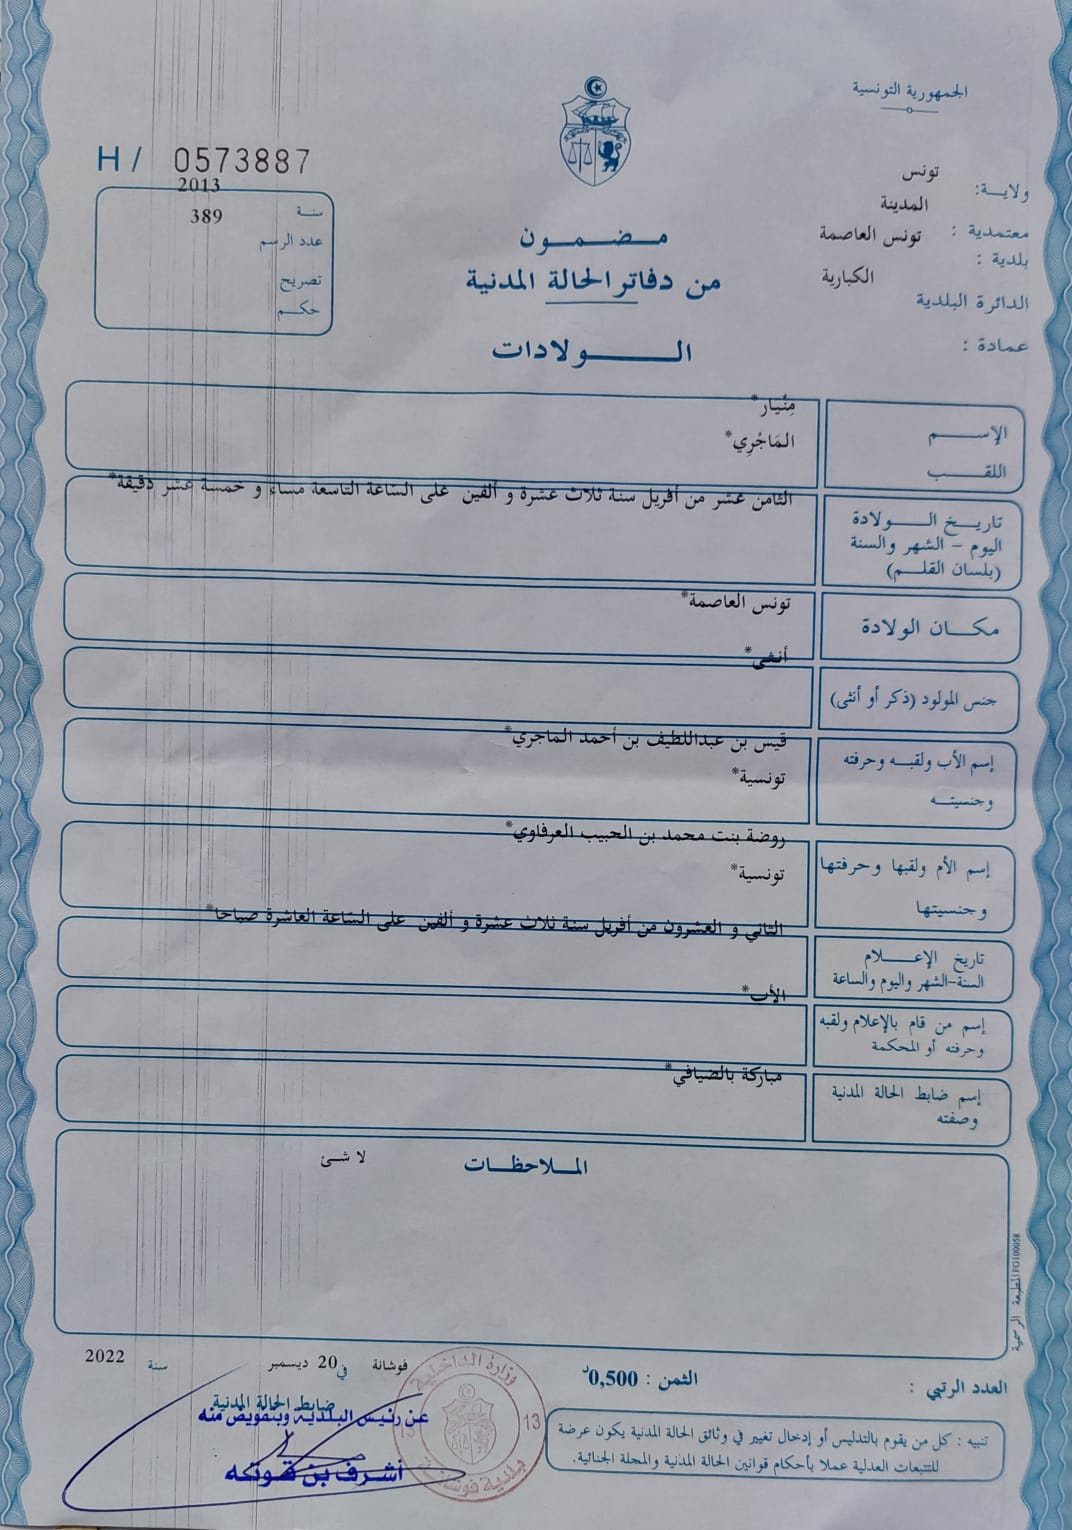 الجمهورية التونسية
H / 0573887
ولايـــة: تونس
معتمدية : المدينة
بلدية : تونس العاصمة
الدائرة البلدية الكبارية
عمادة :
سنة 2013
عدد الرسم 389
تصريح
حكم
مضمون
من دفاتر الحالة المدنية
الولادات
الإسم مِنْيار*
اللقب المَاجْرِي*
تاريخ الولادة
اليوم - الشهر والسنة
(بلسان القلم)
الثامن عشر من أفريل سنة ثلاث عشرة و ألفين على الساعة التاسعة مساء و خمسة عشر دقيقة*
مكان الولادة تونس العاصمة*
جنس المولود (ذكر أو أنثى) أنثى*
إسم الأب ولقبه وحرفته قيس بن عبداللطيف بن أحمد الماجري*
وجنسيته تونسية*
إسم الأم ولقبها وحرفتها روضة بنت محمد بن الحبيب العرفاوي*
وجنسيتها تونسية*
تاريخ الإعلام
السنة-الشهر واليوم والساعة
الثاني و العشرون من أفريل سنة ثلاث عشرة و ألفين على الساعة العاشرة صباحا*
إسم من قام بالإعلام ولقبه
وحرفته أو المحكمة
الأب*
إسم ضابط الحالة المدنية
وصفته
مباركة بالضيافي*
الملاحظات
لا شئ
المطبعة الرسمية
فوشانة في 20 ديسمبر سنة 2022
ضابط الحالة المدنية
عن رئيس البلدية وبتفويض منه
أشرف بن قوته
وزارة الداخلية
13 13
بلدية فوشانة
الثمن : 0,500د
العدد الرتبي :
تنبيه : كل من يقوم بالتدليس أو إدخال تغيير في وثائق الحالة المدنية يكون عرضة
للتتبعات العدلية عملا بأحكام قوانين الحالة المدنية والمجلة الجنائية.